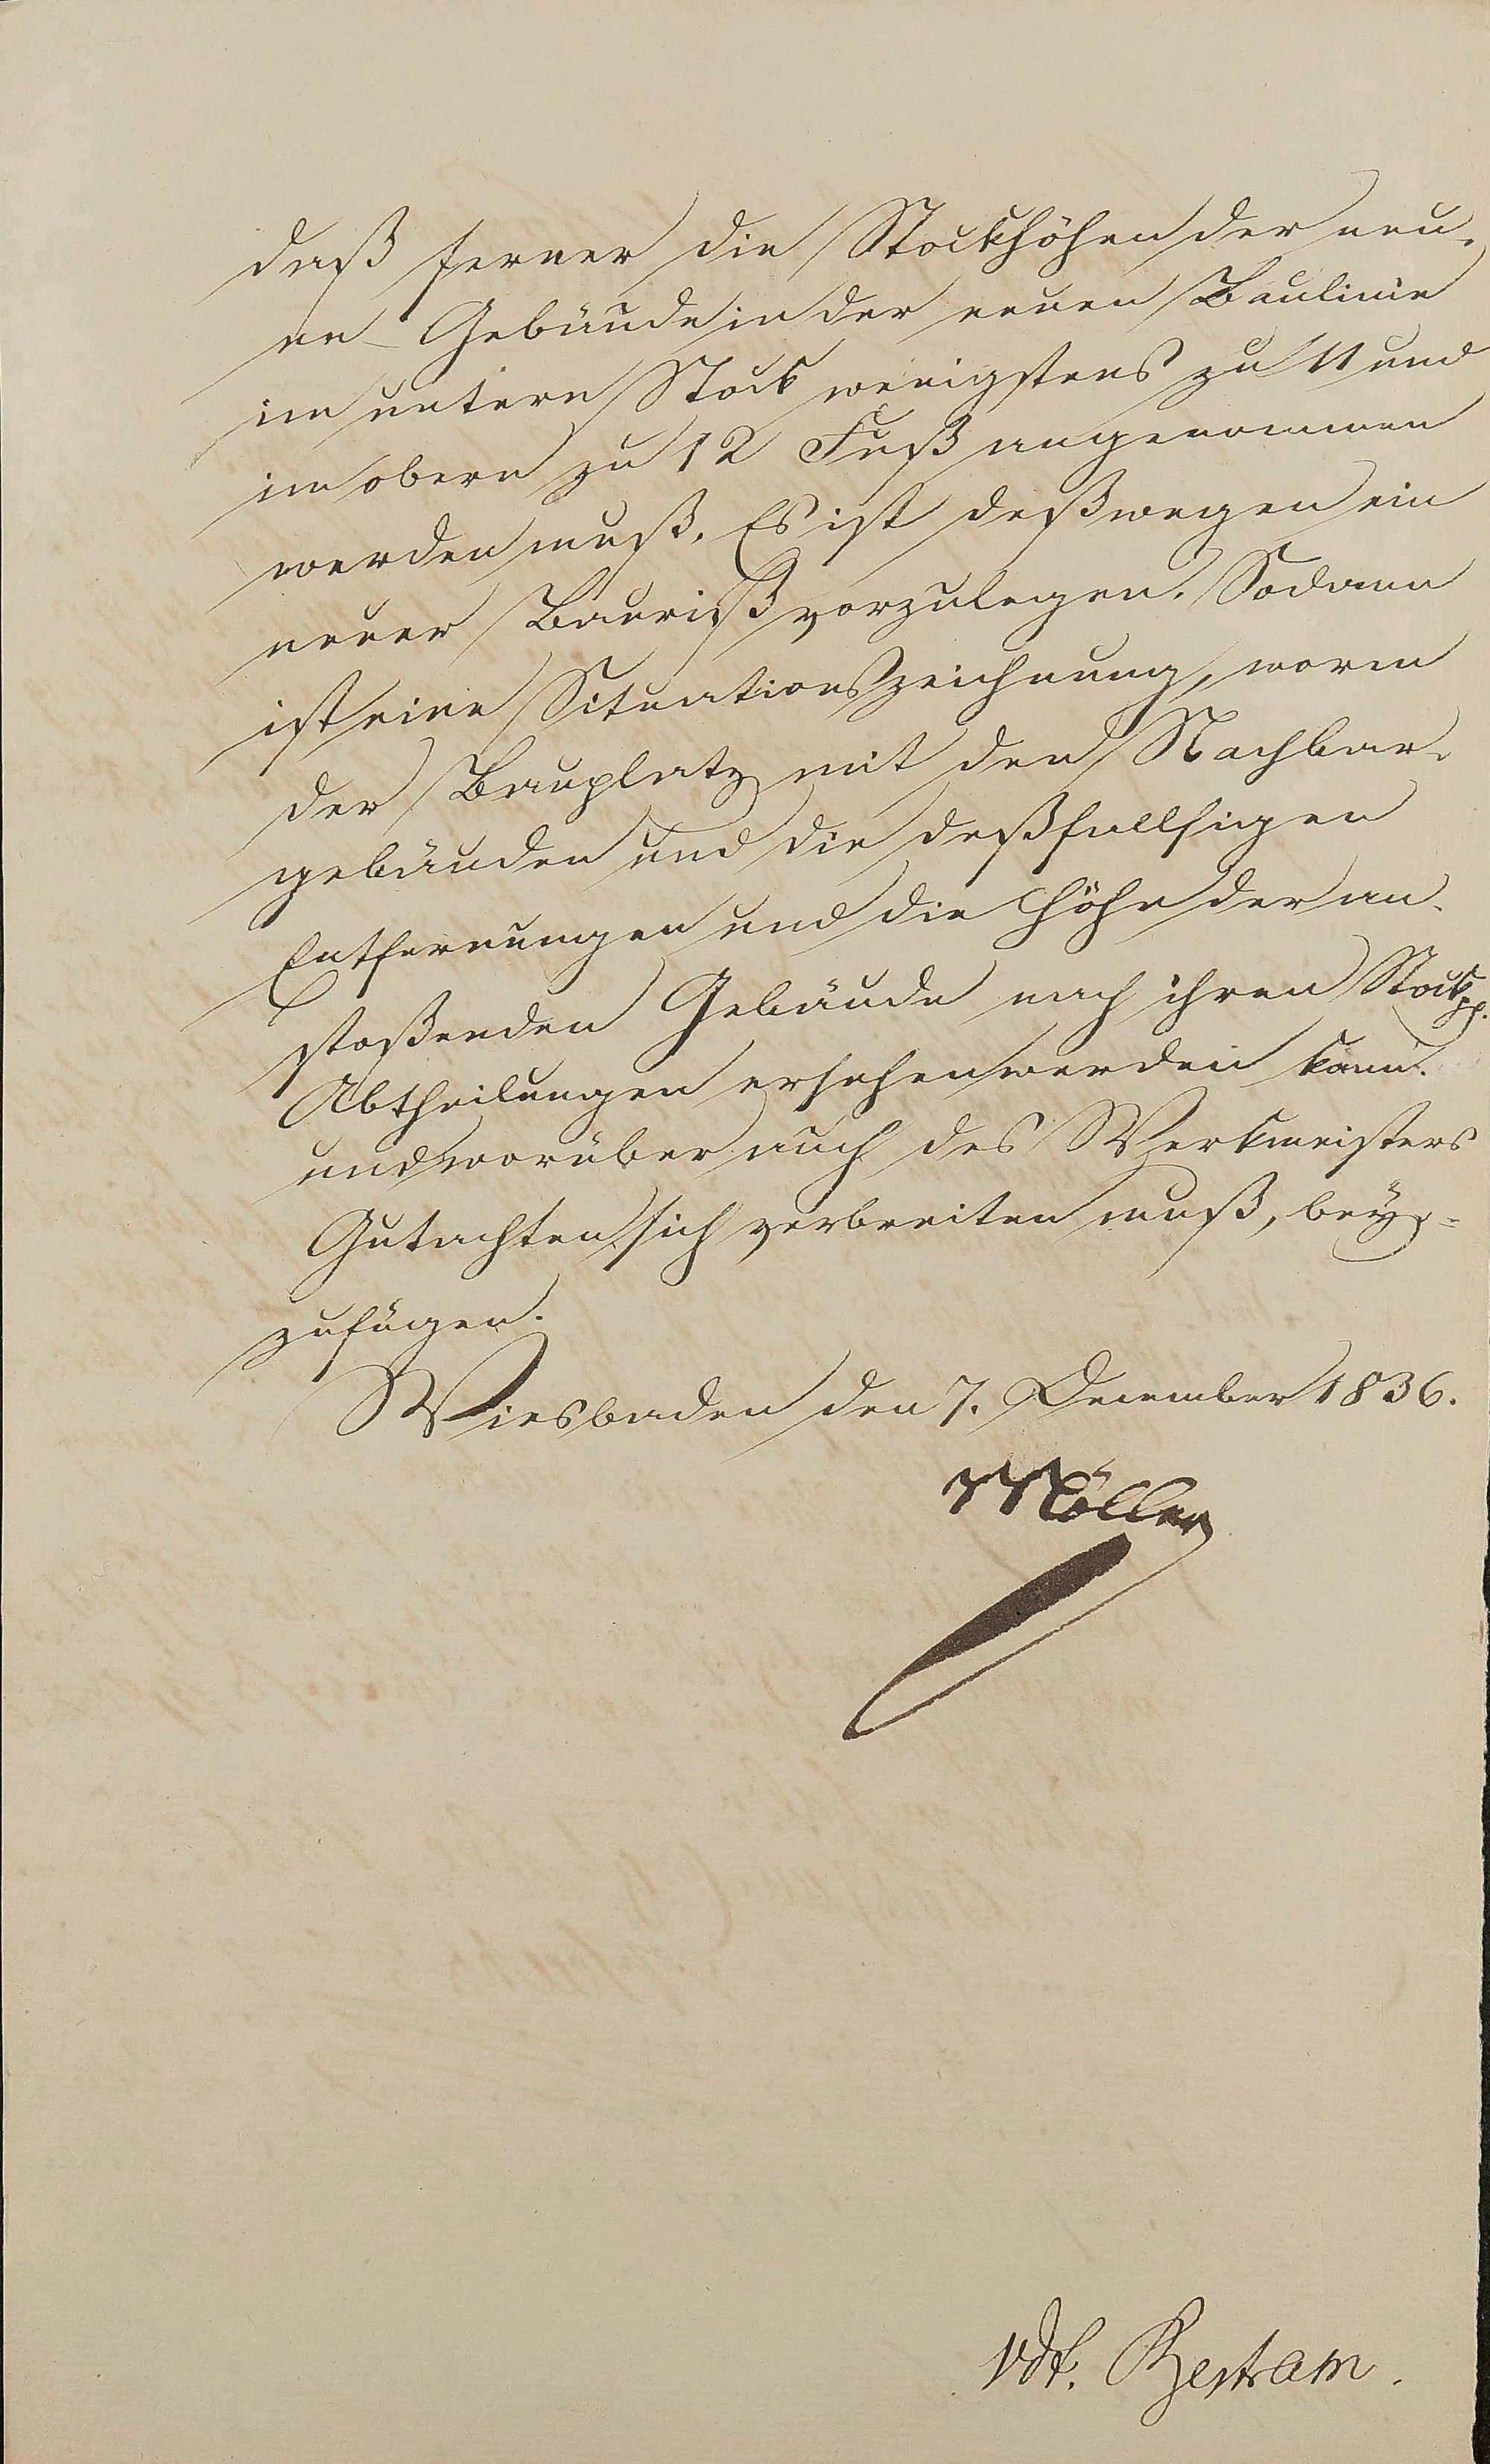 daß ferner die Stockhöhen der neu-
en Gebäude in der neuen Baulinie
im untern Stock wenigstens zu 11 und
im obern zu 12 Fuß angenommen
werden muß. Es ist deßwegen ein
neuer Bauriß vorzulegen. Sodann
ist eine Situationszeichnung, worin
der Bauplatz mit den Nachbar-
gebäuden und die deßfallsigen
Entfernungen und die Höhe der an-
stoßenden Gebäude nach ihren Stock pp.
Abtheilungen ersehen werden kann.
und worüber auch des Werkmeisters
Gutachten sich verbreiten muß, bey-
zufügen.
Wiesbaden den 7. December 1836.
Möller
vdt. Bertram.